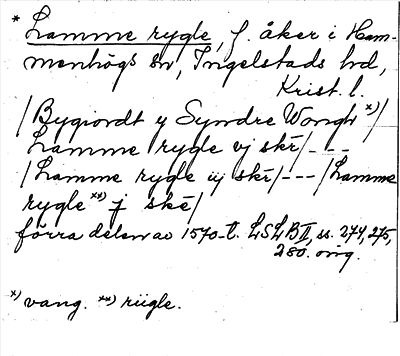 * Lamme rygle, f. åker i Ham-
menhögs sn, Ingelstads hd,
Krist. l.
/Bygiordt y Syndre Wongh x)/
Lamme rygle vj skr/---
/Lamme rygle iij skr/---/Lamme
rygle xx) j skr/
förra delen av 1570-t. LSLB II, ss. 274, 275,
280. orig.
x) vang. xx) riigle.